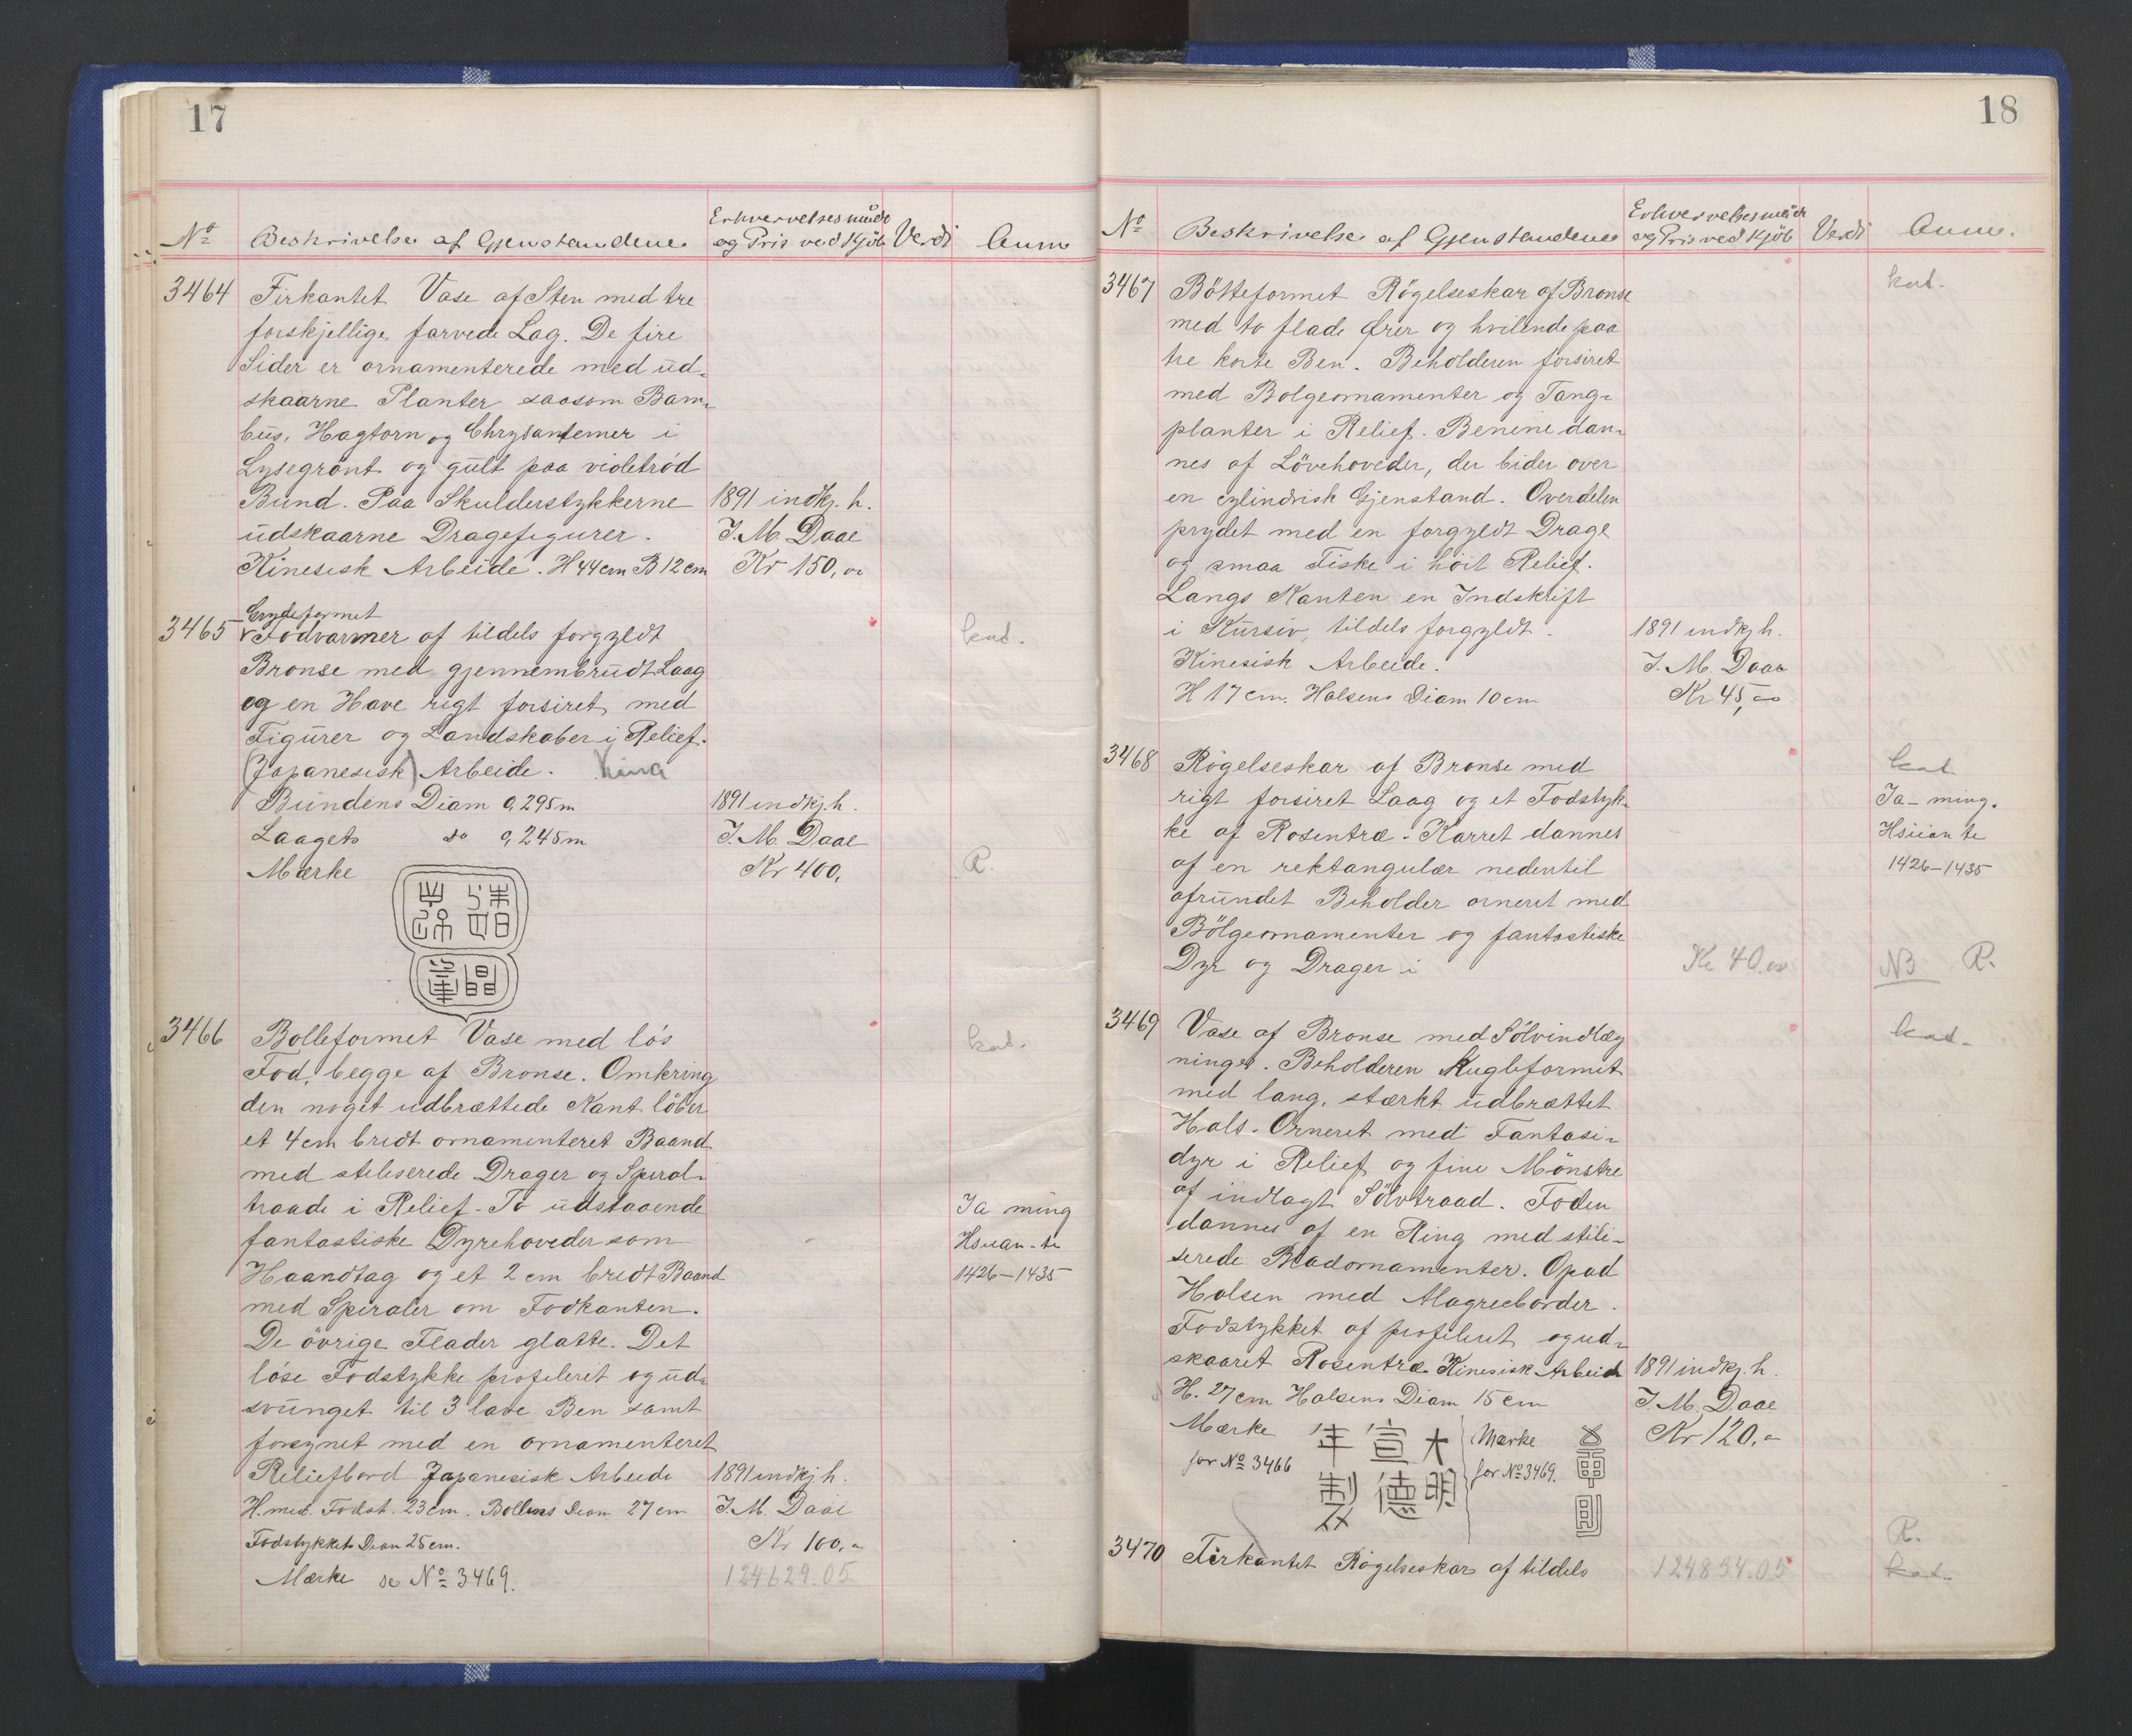 17
Nº Beskrivelse af Gjenstandene Erhvervelsesmåde og Pris ved Kjöb Verdi Anm
3464 Firkantet Vase af Sten med tre
forskjellige farvede Lag. De fire
Sider er ornamenterede med ud-
skaarne Planter saasom Bam-
bus, Hagtorn og Chrysantemer i
Lysegrönt og gult paa violetröd
Bund. Paa Skulderstykkerne 1891 indkj. h.
udskaarne Dragefigurer. J. M. Daae
Kinesisk Arbeide. H 44 cm B 12 cm Kr 150,00
Grydeformet
3465 Fodvarmer af tildels forgyldt kat.
Bronse med gjennembrudt Laag
og en Have rigt forsiret med
Figurer og Landskaber i Relief.
(Japanesisk) Arbeide. Kina
Bundens Diam 0,295 m 1891 indkj. h.
Laagets do 0,245 m J. M. Daae
Mærke Kr 400, R.
3466 Bolleformet Vase med lös kat.
Fod, begge af Bronse. Omkring
den noget udbrættede Kant löber
et 4 cm bredt ornamenteret Baand
med stiliserede Drager og Spiral-
traade i Relief. To udstaaende Ta ming
fantastiske Dyrehoveder som Hsuan-te
Haandtag og et 2 cm bredt Baand 1426-1435
med Spiraler om Fodkanten.
De övrige Flader glatte. Det
löse Fodstykke profileret og ud-
svunget til 3 lave Ben samt
forsynet med en ornamenteret
Reliefbord Japanesisk Arbeide 1891 indkj. h.
H. med Fodst. 23 cm. Bollens Diam 27 cm J. M. Daae
Fodstykkets Diam 25 cm. Kr 100,
Mærke se Nº 3469. 124629.05
18
Nº Beskrivelse af Gjenstandene Erhvervelsesmåde og Pris ved Kjöb Verdi Anm.
3467 Bötteformet Rögelseskar af Bronse kat.
med to flade Ører og hvilende paa
tre korte Ben. Beholderen forsiret
med Bolgeornamenter og Tang-
planter i Relief. Benene dan-
nes af Lövehoveder, der bider over
en cylindrisk Gjenstand. Overdelen
prydet med en forgyldt Drage
og smaa Fiske i höit Relief.
Langs Kanten en Indskrift
i Kursiv, tildels forgyldt. 1891 indkj h.
Kinesisk Arbeide. J. M. Daae
H 17 cm. Halsens Diam 10 cm Kr 45,00
3468 Rögelseskar af Bronse med kat
rigt forsiret Laag og et Fodstyk- Ta-ming.
ke af Rosentræ. Karret dannes Hsüan te
af en rektangulær nedentil 1426-1435
afrundet Beholder orneret med
Bölgeornamenter og fantastiske
Dyr og Drager i Kr 40.00 NB R.
3469 Vase af Bronse med Sölvindlæg kat.
ninger. Beholderen Kugleformet
med lang, stærkt udbrættet
Hals. Orneret med Fantasi-
dyr i Relief og fine Mönstre
af indlagt Sölvtraad. Foden
dannes af en Ring med stili-
serede Bladornamenter. Opad
Halsen med Alagreeborder.
Fodstykket af profileret og ud-
skaaret Rosentræ Kinesisk Arbeide 1891 indkj. h.
H. 27 cm Halsens Diam 15 cm J. M. Daae
Mærke for Nº 3466 大明宣德年製 Mærke for Nº 3469. Kr 120,
3470 Firkantet Rögelseskar af tildels 124834.05 R. kat.